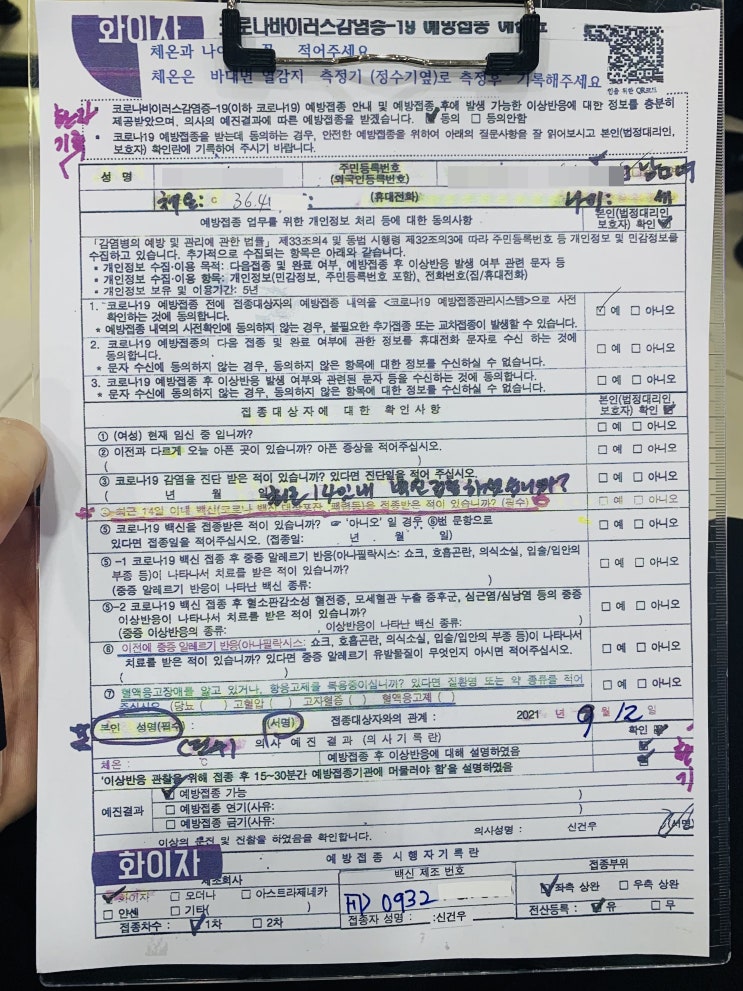 화이자
코로나바이러스감염증-19 예방접종
체온과 적어주세요
체온은 바대면 열감지 측정기 (정수기옆)로 측정후 기록해주세요
QR코드
기록
코로나바이러스감염증-19(이하 코로나19) 예방접종 안내 및 예방접종 후에 발생 가능한 이상반응에 대한 정보를 충분히
제공받았으며, 의사의 예진결과에 따른 예방접종을 받겠습니다. ☑ 동의 □ 동의안함
• 코로나19 예방접종을 받는데 동의하는 경우, 안전한 예방접종을 위하여 아래의 질문사항을 잘 읽어보시고 본인(법정대리인,
보호자) 확인란에 기록하여 주시기 바랍니다.
성 명
주민등록번호
(외국인등록번호)
체온: ℃ 36.4
(휴대전화)
나이: 세
예방접종 업무를 위한 개인정보 처리 등에 대한 동의사항
본인(법정대리인,
보호자) 확인 ☑
「감염병의 예방 및 관리에 관한 법률」 제33조의4 및 동법 시행령 제32조의3에 따라 주민등록번호 등 개인정보 및 민감정보를
수집하고 있습니다. 추가적으로 수집되는 항목은 아래와 같습니다.
▪ 개인정보 수집·이용 목적: 다음접종 및 완료 여부, 예방접종 후 이상반응 발생 여부 관련 문자 등
▪ 개인정보 수집·이용 항목: 개인정보(민감정보, 주민등록번호 포함), 전화번호(집/휴대전화)
▪ 개인정보 보유 및 이용기간: 5년
1. 코로나19 예방접종 전에 접종대상자의 예방접종 내역을 <코로나19 예방접종관리시스템>으로 사전
확인하는 것에 동의합니다.
* 예방접종 내역의 사전확인에 동의하지 않는 경우, 불필요한 추가접종 또는 교차접종이 발생할 수 있습니다.
☑ 예 □ 아니오
2. 코로나19 예방접종의 다음 접종 및 완료 여부에 관한 정보를 휴대전화 문자로 수신 하는 것에
동의합니다.
* 문자 수신에 동의하지 않는 경우, 동의하지 않은 항목에 대한 정보를 수신하실 수 없습니다.
□ 예 □ 아니오
3. 코로나19 예방접종 후 이상반응 발생 여부와 관련된 문자 등을 수신하는 것에 동의합니다.
* 문자 수신에 동의하지 않는 경우, 동의하지 않은 항목에 대한 정보를 수신하실 수 없습니다.
□ 예 □ 아니오
접종대상자에 대한 확인사항
본인(법정대리인,
보호자) 확인 ☑
① (여성) 현재 임신 중 입니까?
□ 예 □ 아니오
② 이전과 다르게 오늘 아픈 곳이 있습니까? 아픈 증상을 적어주십시오.
( )
□ 예 □ 아니오
③ 코로나19 감염을 진단 받은 적이 있습니까? 있다면 진단일을 적어 주십시오.
( 년 월 일)
□ 예 □ 아니오
최근 14일내
④ 최근 14일 이내 백신(코로나 백신, 대상포진, 폐렴등)을 접종받은 적이 있습니까? (필수)
□ 예 □ 아니오
⑤ 코로나19 백신을 접종받은 적이 있습니까? ☞ '아니오' 일 경우, ⑥번 문항으로
있다면 접종일을 적어주십시오. (접종일: 년 . 월 . 일)
□ 예 □ 아니오
⑤-1 코로나19 백신 접종 후 중증 알레르기 반응(아나필락시스: 쇼크, 호흡곤란, 의식소실, 입술/입안의
부종 등)이 나타나서 치료를 받은 적이 있습니까?
(중증 알레르기 반응이 나타난 백신 종류: )
□ 예 □ 아니오
⑤-2 코로나19 백신 접종 후 혈소판감소성 혈전증, 모세혈관 누출 증후군, 심근염/심낭염 등의 중증
이상반응이 나타나서 치료를 받은 적이 있습니까?
(중증 이상반응의 종류: , 이상반응이 나타난 백신 종류: )
□ 예 □ 아니오
⑥ 이전에 중증 알레르기 반응(아나필락시스: 쇼크, 호흡곤란, 의식소실, 입술/입안의 부종 등)이 나타나서
치료를 받은 적이 있습니까? 있다면 중증 알레르기 유발물질이 무엇인지 아시면 적어주십시오.
( )
□ 예 □ 아니오
⑦ 혈액응고장애를 앓고 있거나, 항응고제를 복용중이십니까? 있다면 질환명 또는 약 종류를 적어
주십시오. (당뇨 ( ) 고혈압 ( ) 고지혈증 ( ) 혈액응고제 ( )
□ 예 □ 아니오
본인 성명(필수) : (서명) 접종대상자와의 관계 : 2021 년 9 월 12 일
(필수)
의사 예진 결과 (의사기록란)
확인 ☑
체온 : ℃
예방접종 후 이상반응에 대해 설명하였음
'이상반응 관찰을 위해 접종 후 15~30분간 예방접종기관에 머물러야 함'을 설명하였음
예진결과
☑ 예방접종 가능
□ 예방접종 연기(사유: )
□ 예방접종 금기(사유: )
이상의 문진 및 진찰을 하였음을 확인합니다. 의사성명 : 신건우 (서명)
화이자
예방접종 시행자기록란
제조회사
백신 제조 번호
접종부위
☑ 화이자 □ 모더나 □ 아스트라제네카
□ 얀센 □ 기타( )
FD 0932
☑ 좌측 상완 □ 우측 상완
접종차수 : ☑ 1차 □ 2차
접종자 성명 : :신건우
전산등록 : ☑ 유 □ 무